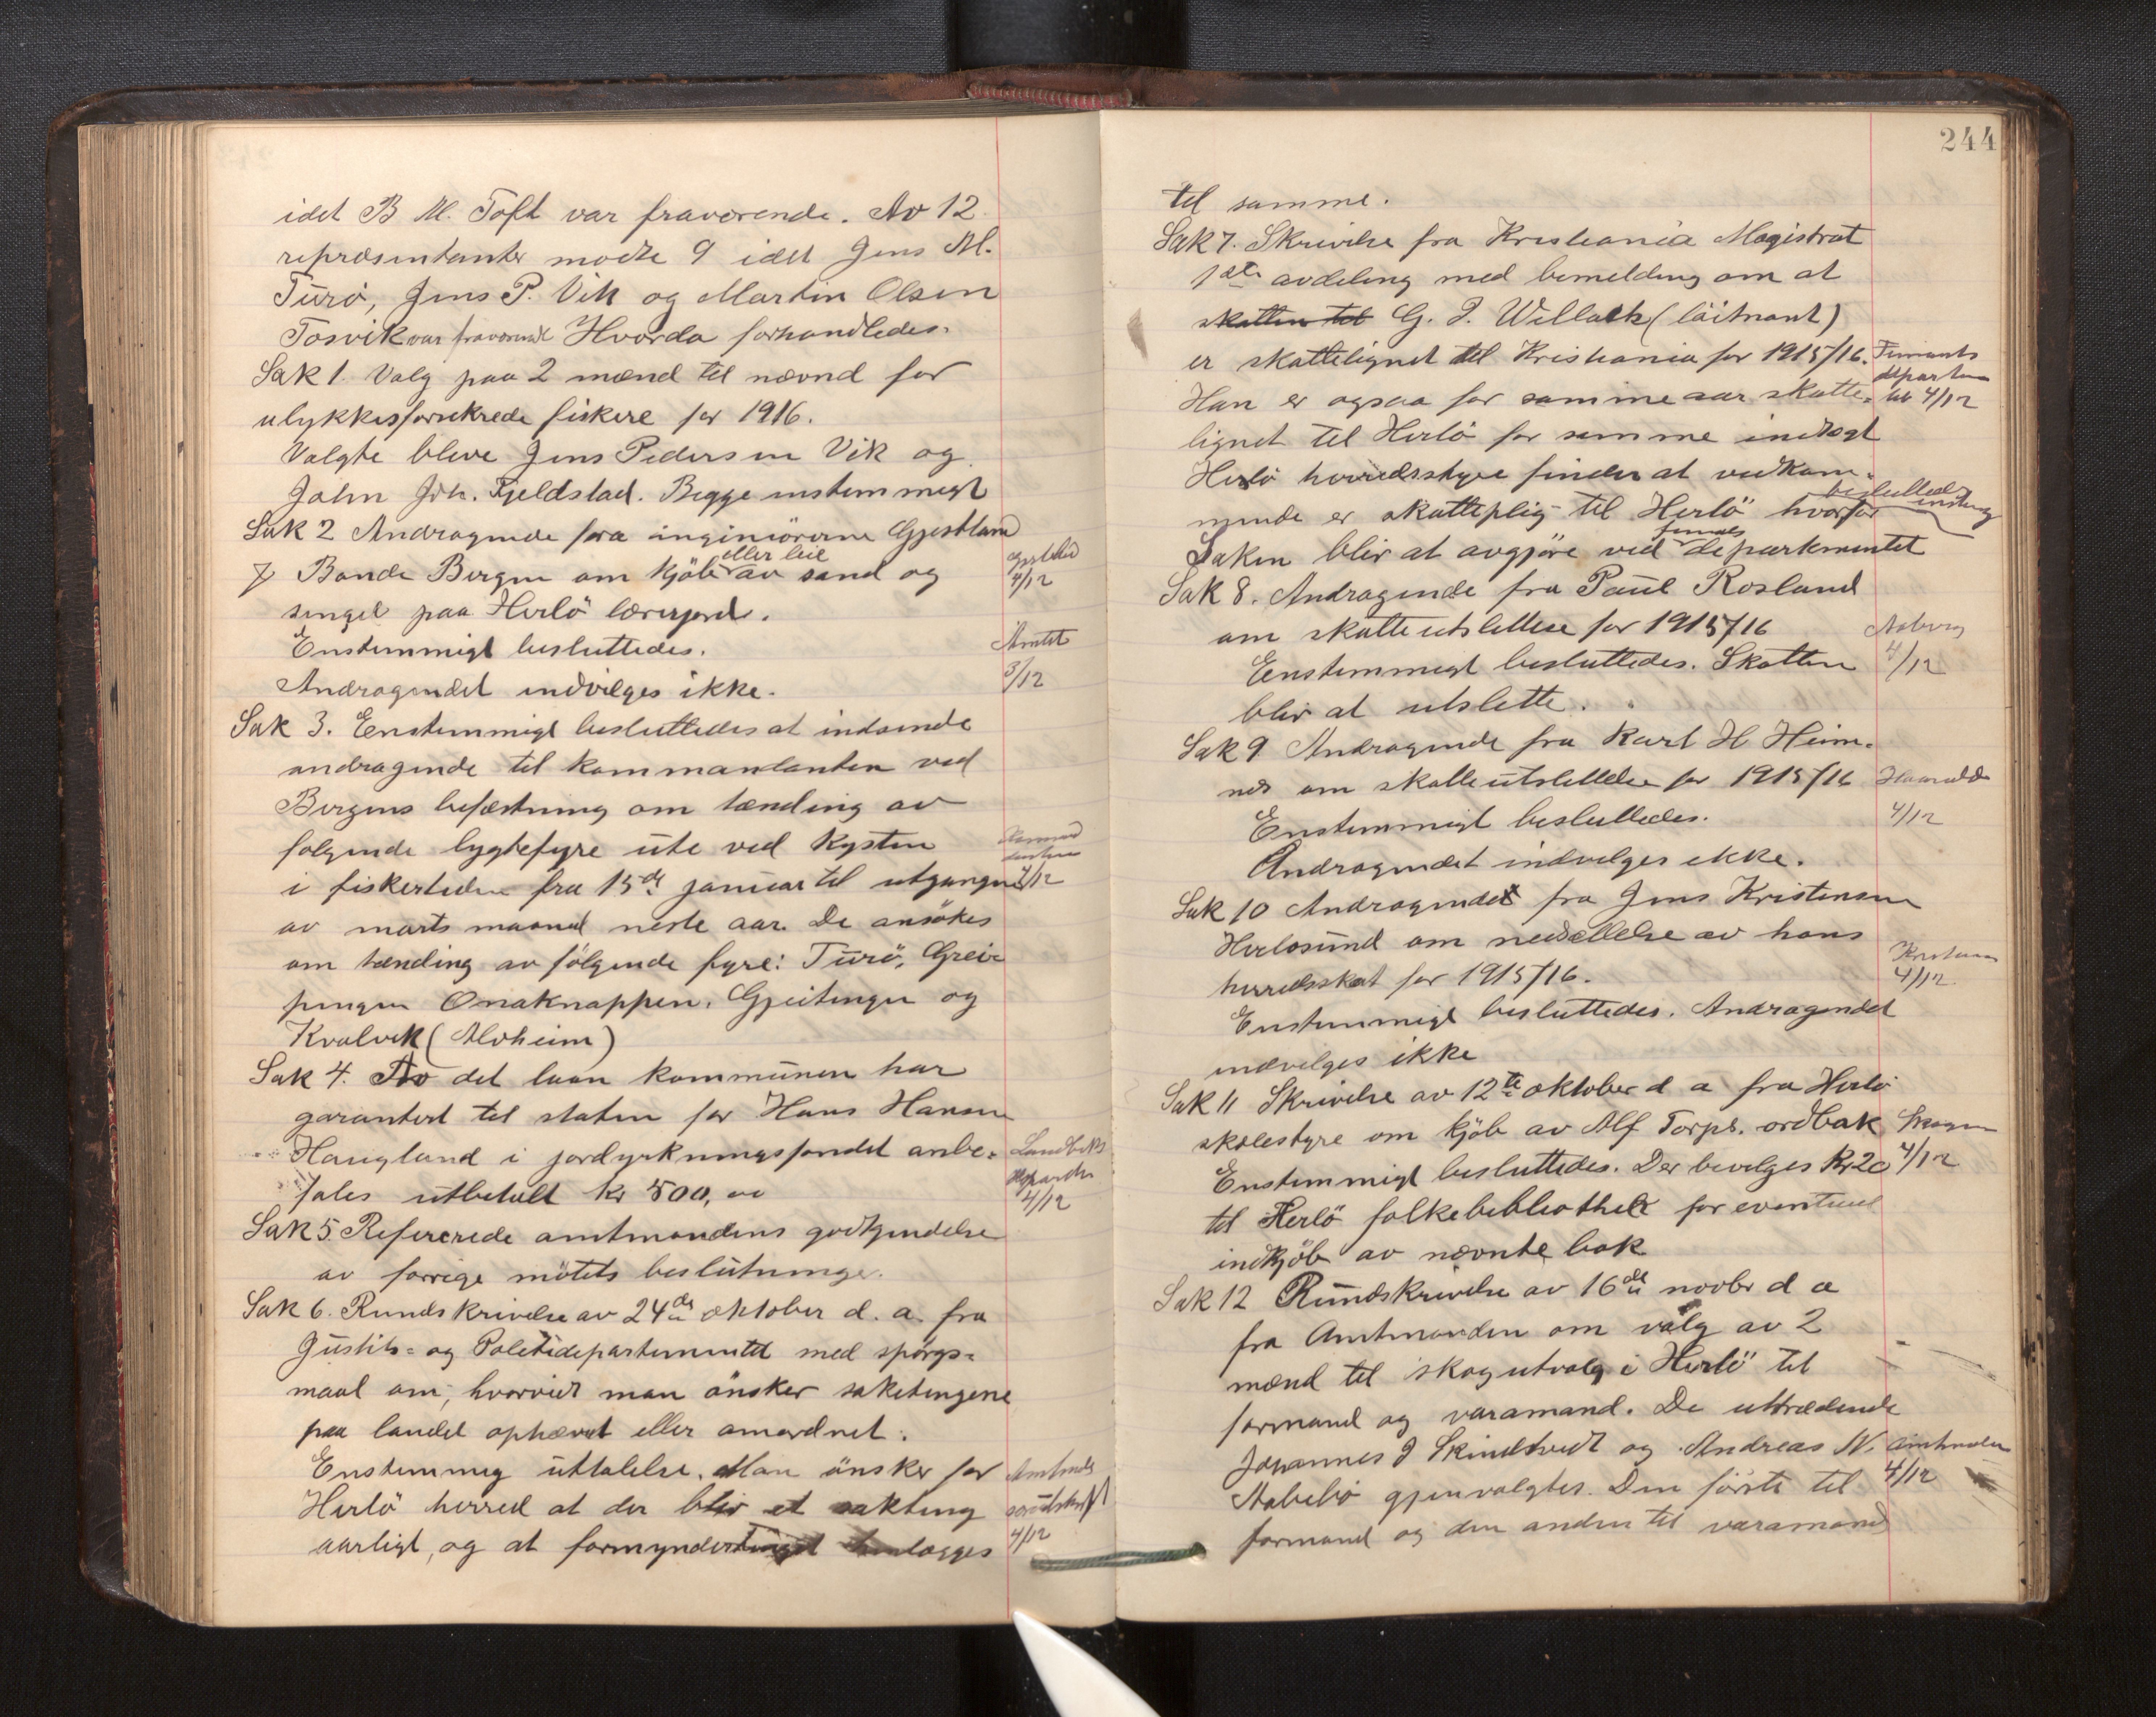 idet B M. Toft var fraværende. Av 12
repræsentanter mødte 9 idet Jens M.
Turö, Jens P. Vik og Martin Olsen
Tosvik var fraværende Hvorda forhandledes.
Sak 1. Valg paa 2 mænd til nævnd for
ulykkesforsikrede fiskere for 1916.
Valgte bleve Jens Pedersen Vik og
John Joh. Fjeldstad. Begge enstemmigt
Sak 2 Andragende fra ingeniörerne Gjestland
& Bonde Bergen om kjöb eller leie av sand og
singel paa Herlö lærerjord.
Enstemmigt besluttedes.
Andragendet indvilges ikke.
Sak 3. Eenstemmigt besluttedes at indsende
andragende til kommandanten ved
Bergens befæstning om tænding av
folgende lygtefyre ute ved kysten
i fisketiden fra 15de januar til utgangen
av marts maaned neste aar. De ansökes
om tænding av følgende fyre: Turö, Grei-
pingen Onaknappen, Gjeitingen og
Kvalvik (Alvheim)
Sak 4. Av det laan kommunen har
garantert til staten for Hans Hansen
Haugland i jordyrkningsfondet anbe-
fales utbetalt kr 500,00
Sak 5 Refererede amtmandens godkjendelse
av forrige mötets beslutninger.
Sak 6. Rundskrivelse av 24de oktober d. a. fra
Justits- og Politidepartementet med spörgs-
maal om, hvorvidt man önsker saketingene
paa landet ophævet eller omordnet.
Enstemmig uttalelse. Man önsker for
Herlö herred at der blir et sakting
aarligt, og at formyndertinget
4/12
Amtet
3/12
4/12
Landbruks
departem
4/12
4/12
244
til samme.
Sak 7. Skrivelse fra Kristiania Magistrat
1ste avdeling med bemelding om at
skatten til G. J. Willoch (löitnant)
er skattelignet til Kristiania for 1915/16.
Han er ogsaa for samme aar skatte-
lignet til Herlö for samme indtægt
Herlö herredsstyre finder at vedkom-
mende er skattepligtig til Herlö hvorfor besluttedes enstemmig
Saken blir at avgjöre ved finans departementet
Sak 8. Andragende fra Paul Rosland
om skatteutslettelse for 1915/16
Eenstemmigt besluttedes. Skatten
blir at utslette.
Sak 9 Andragende fra Karl H. Heim-
nes om skatteutslettelse for 1915/16
Enstemmigt besluttedes.
Andragendet indvilges ikke.
Sak 10 Andragende fra Jens Kristensen
Herlosund om nedsettelse av hans
herredsskat for 1915/16.
Enstemmigt besluttedes. Andragendet
indvilges ikke
Sak 11 Skrivelse av 12te oktober d a fra Herlö
skolestyre om kjöb av Alf Torps. ordbok
Enstemmigt besluttedes. Der bevilges kr 20
til Herlö folkebibliothek for eventuel
indkjöb av nævnte bok
Sak 12 Rundskrivelse av 16de novbr d a
fra Amtmanden om valg av 2
mænd til skogutvalg i Herlö til
formand og varamand. De uttrædende
Johannes J Skindtveit og Andreas N.
Aabebö gjenvalgtes. Den förste til
formand og den anden til varamand
Finants
departem
4/12
4/12
4/12
Kristens
4/12
4/12
Amtmanden
4/12